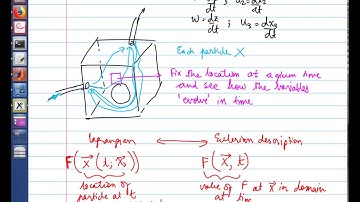 dt dt
W = dz/dt ; u₃ = dx₃/dt
Each particle X
Fix the location at a given time
and see how the variables
'evolve' in time
Lagrangian ⟷ Eulerian description
F(x⃗(t; x⃗₀)) F(x⃗, t)
location of value of F at x⃗ in domain
particle at t at time